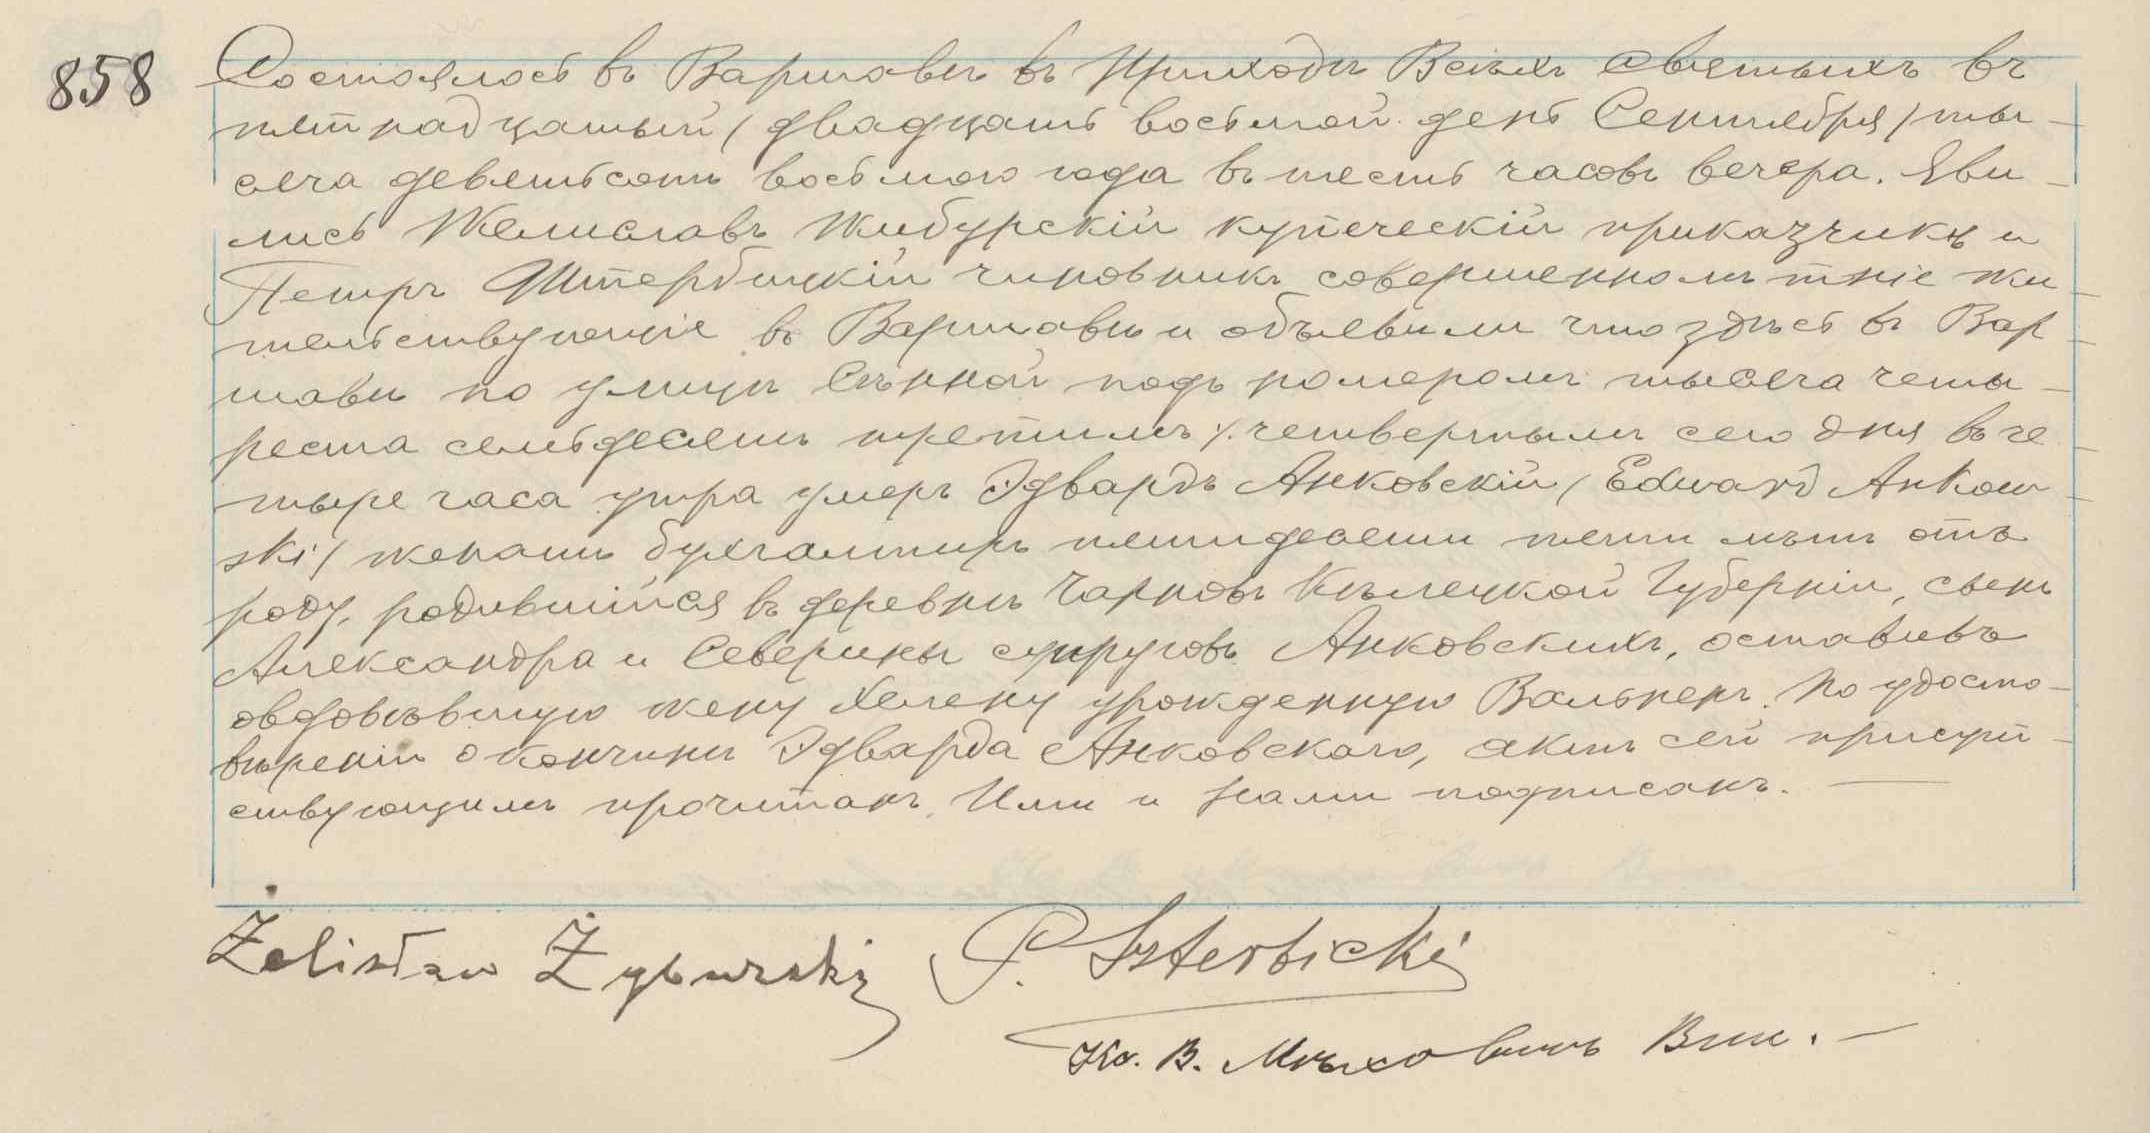 858
Состоялось въ Варшавѣ въ Приходѣ Всѣхъ Святыхъ въ
пятнадцатый / двадцать восьмой день Сентября / ты-
сяча девятьсотъ восьмого года въ шесть часовъ вечера. Яви-
лись Желиславъ Жибурскій купеческій приказчикъ и
Петръ Штербицкій чиновникъ совершеннолѣтніе жи-
тельствующіе въ Варшавѣ и объявили что здѣсь въ Вар-
шавѣ по улицѣ Сѣнной подъ номеромъ тысяча четы-
реста семьдесятъ третьимъ /. четвертымъ сего дня въ че-
тыре часа утра умеръ Эдвардъ Анковскій / Edward Ankow-
ski / женатъ бухгалтиръ пятидесяти пяти лѣтъ отъ
роду, родившійся въ деревнѣ Чарновъ Кѣлецкой Губерніи, сынъ
Александра и Северины супруговъ Анковскихъ, оставивъ
овдовѣвшую жену Хелену урожденную Вальнеръ. По удосто-
вѣреніи о кончинѣ Эдварда Анковскаго, актъ сей присут-
ствующимъ прочитанъ, Ими и Нами подписанъ. —
Żelisław Żyburski P. Szterbicki
Кс. В. Мѣховичъ Вик. —